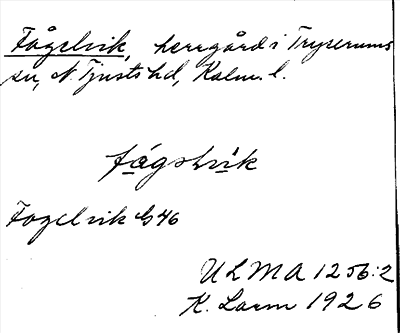 Fågelvik, herrgård i Tryserums
sn, N. Tjusts hd, Kalm. l.
fágshvik
Fogelvik G 46
ULMA 1256:2
K. Larm 1926